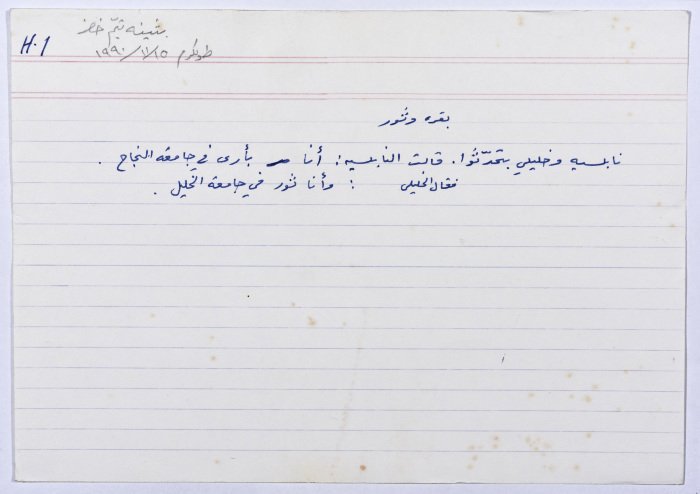 بثينه تيّم خضر
H.1
طولكرم ١٩٩٠/١/١٥
بقره وثور
نابلسيه وخليلي بتحدّثوا. قالت النابلسيه: أنا بأرى في جامعة النجاح.
فقال الخليلي : وأنا ثور في جامعة الخليل.